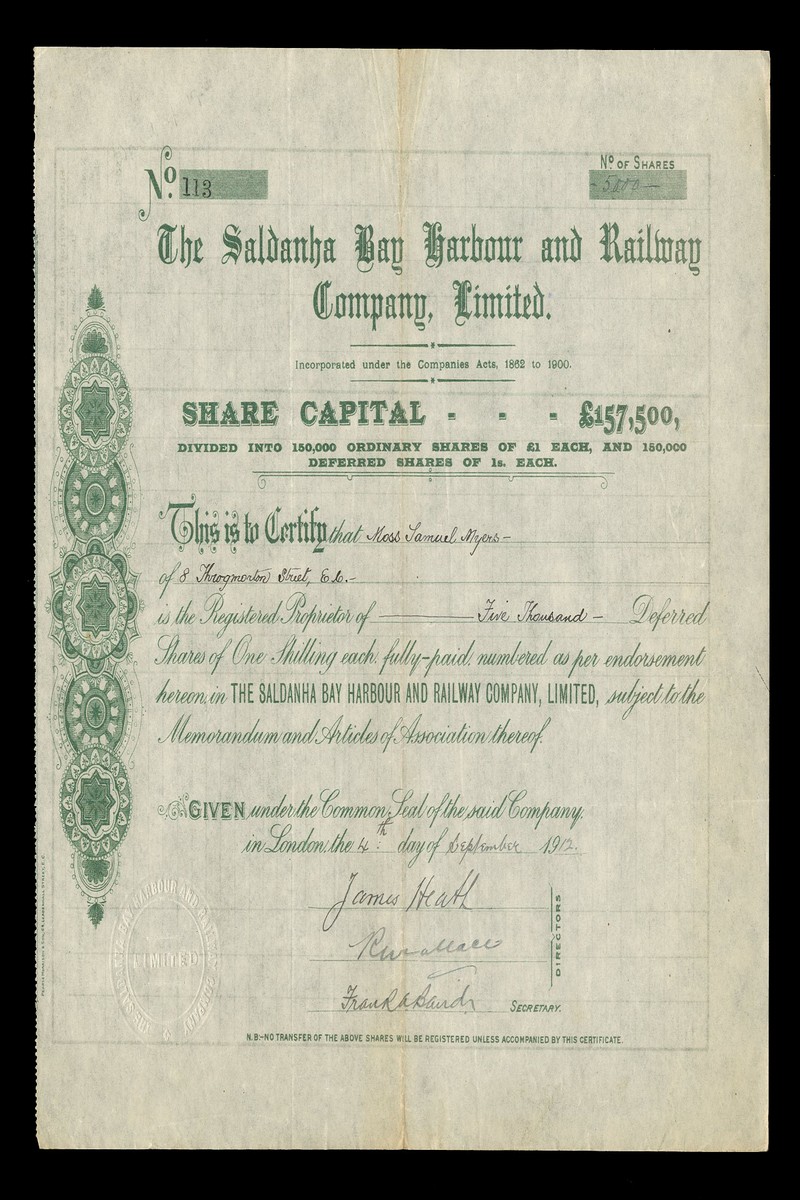 No. 113
No OF SHARES
- 5000 -
The Saldanha Bay Harbour and Railway
Company, Limited.
Incorporated under the Companies Acts, 1862 to 1900.
SHARE CAPITAL - - - £157,500,
DIVIDED INTO 150,000 ORDINARY SHARES OF £1 EACH, AND 150,000
DEFERRED SHARES OF 1s. EACH.
This is to Certify that Moss Samuel Myers -
of 8 Throgmorton Street, E.C. -
is the Registered Proprietor of Five Thousand - Deferred
Shares of One Shilling each, fully-paid, numbered as per endorsement
hereon, in THE SALDANHA BAY HARBOUR AND RAILWAY COMPANY, LIMITED, subject to the
Memorandum and Articles of Association thereof.
GIVEN under the Common Seal of the said Company,
in London, the 4th day of September 1912.
James Heath
R Wallace
DIRECTORS
Frank A Baird
SECRETARY.
THE SALDANHA BAY HARBOUR AND RAILWAY COMPANY
LIMITED
N.B:-NO TRANSFER OF THE ABOVE SHARES WILL BE REGISTERED UNLESS ACCOMPANIED BY THIS CERTIFICATE.